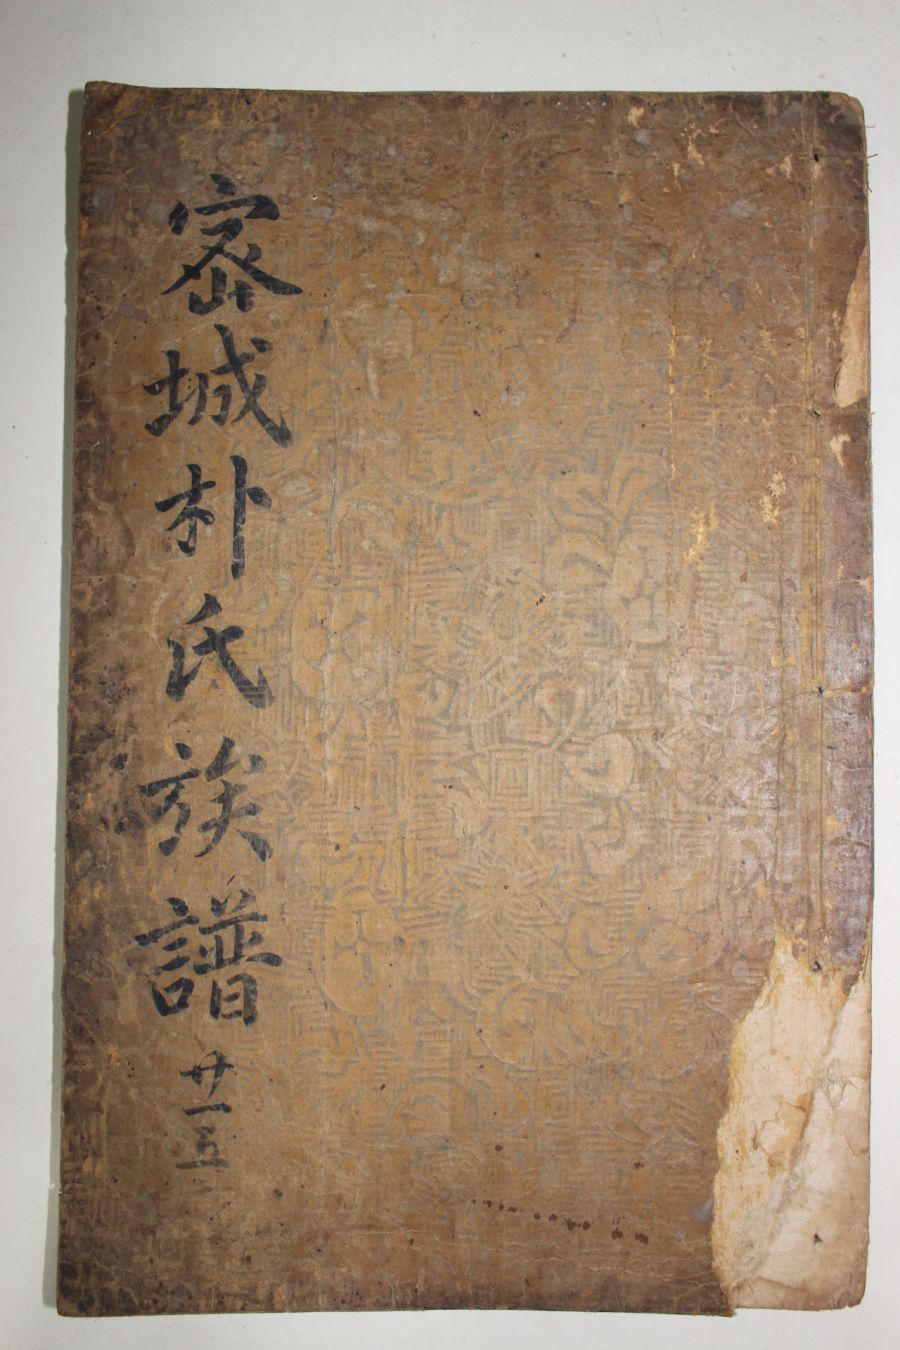 密城朴氏族譜 廿一五